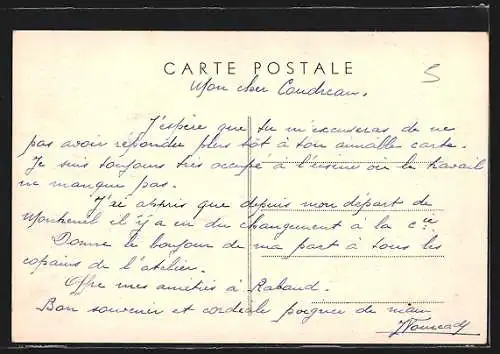 CARTE POSTALE
5
Mon cher Coudreau,
J'espère que tu m'excuseras de ne
pas avoir répondre plus tôt à ton aimable carte.
Je suis toujours très occupé à l'usine où le travail
ne manque pas.
J'ai appris que depuis mon départ de
il y a eu du changement à la Cie.
Donne le bonjour de ma part à tous les
copains de l'atelier.
Offre mes amitiés à Rabaud.
Bon souvenir et cordiale poignée de main